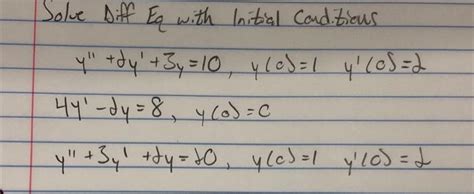 Solve Diff Eq with Initial Conditions
y'' + 2y' + 3y = 10, y(0) = 1 y'(0) = 2
4y' - 2y = 8, y(0) = 0
y'' + 3y' + 2y = 20, y(0) = 1 y'(0) = 2